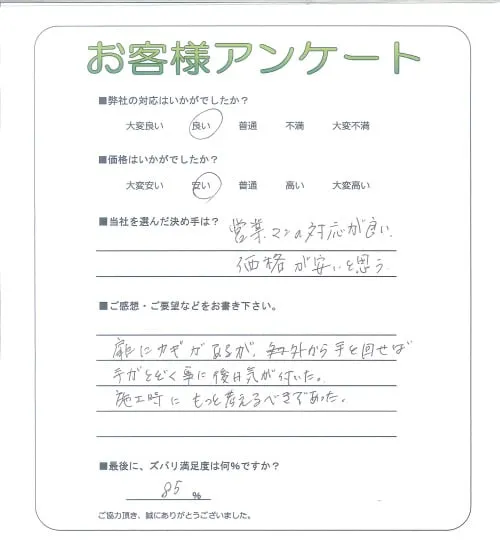 お客様アンケート
■弊社の対応はいかがでしたか？
大変良い 良い 普通 不満 大変不満
■価格はいかがでしたか？
大変安い 安い 普通 高い 大変高い
■当社を選んだ決め手は？ 営業マンの対応が良い
価格が安いと思う
■ご感想・ご要望などをお書き下さい。
扉にカギがあるが、外から手を回せば
手がとどく事に後日気が付いた。
施工時にもっと考えるべきであった。
■最後に、ズバリ満足度は何％ですか？
85 ％
ご協力頂き、誠にありがとうございました。